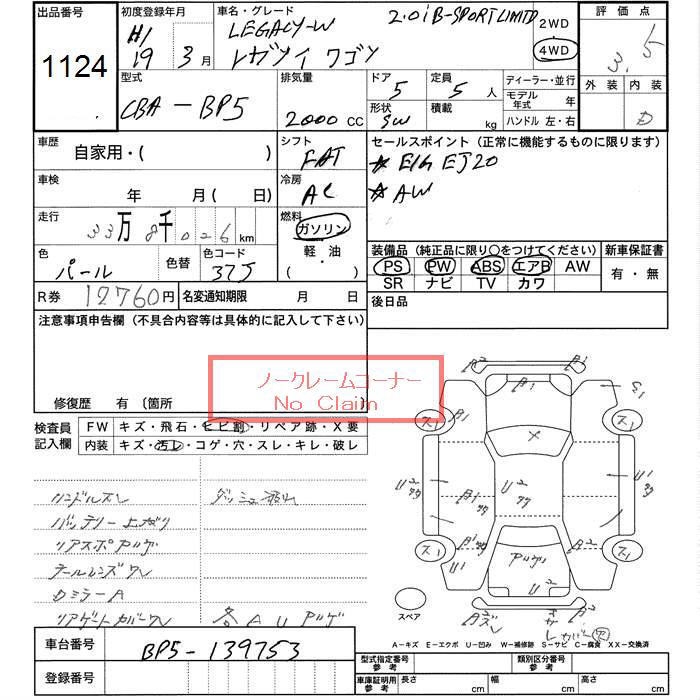 出品番号
1124
初度登録年月
H/
19年 3月
車名・グレード
LEGACY-W 2.0i B-SPORT LIMTD
レガツイ ワゴン
2WD
4WD
評価点
3.5
外装 内装
D
型式
CBA-BP5
排気量
2000 CC
ドア
5
形状
SW
定員
5 人
積載
kg
ディーラー・並行
モデル年式 年
ハンドル 左・右
車歴
自家用・( )
シフト
FAT
セールスポイント (正常に機能するものに限ります)
☆ E/G EJ20
☆ AW
車検
年 月( 日)
冷房
AC
走行
33万8千026km
燃料
ガソリン
軽・油
( )
色
パール
色替
色コード
37J
装備品 (純正品に限り〇をつけてください)
PS PW ABS エアB AW
SR ナビ TV カワ
新車保証書
有・無
R券 12760円
名変通知期限 月 日
後日品
注意事項申告欄 (不具合内容等は具体的に記入して下さい)
ノークレームコーナー
No Claim
修復歴 有 〔箇所
検査員記入欄
FW キズ・飛石・ヒビ割・リペア跡・X要
内装 キズ・汚レ・コゲ・穴・スレ・キレ・破レ
ハンドルスレ
ダッシュ汚れ
バッテリー上がり
リアスポアツゲ
テールレンズワレ
Dミラー A
リアゲートカバーワレ
各 A U アツゲ
スペア
A-キズ E-エクボ U-凹み W-補修跡 S-サビ C-腐食 XX-交換済
車台番号
BP5-139753
登録番号
型式指定番号 参考
類別区分番号 参考
車庫証明用 参考
長さ cm
幅 cm
高さ cm